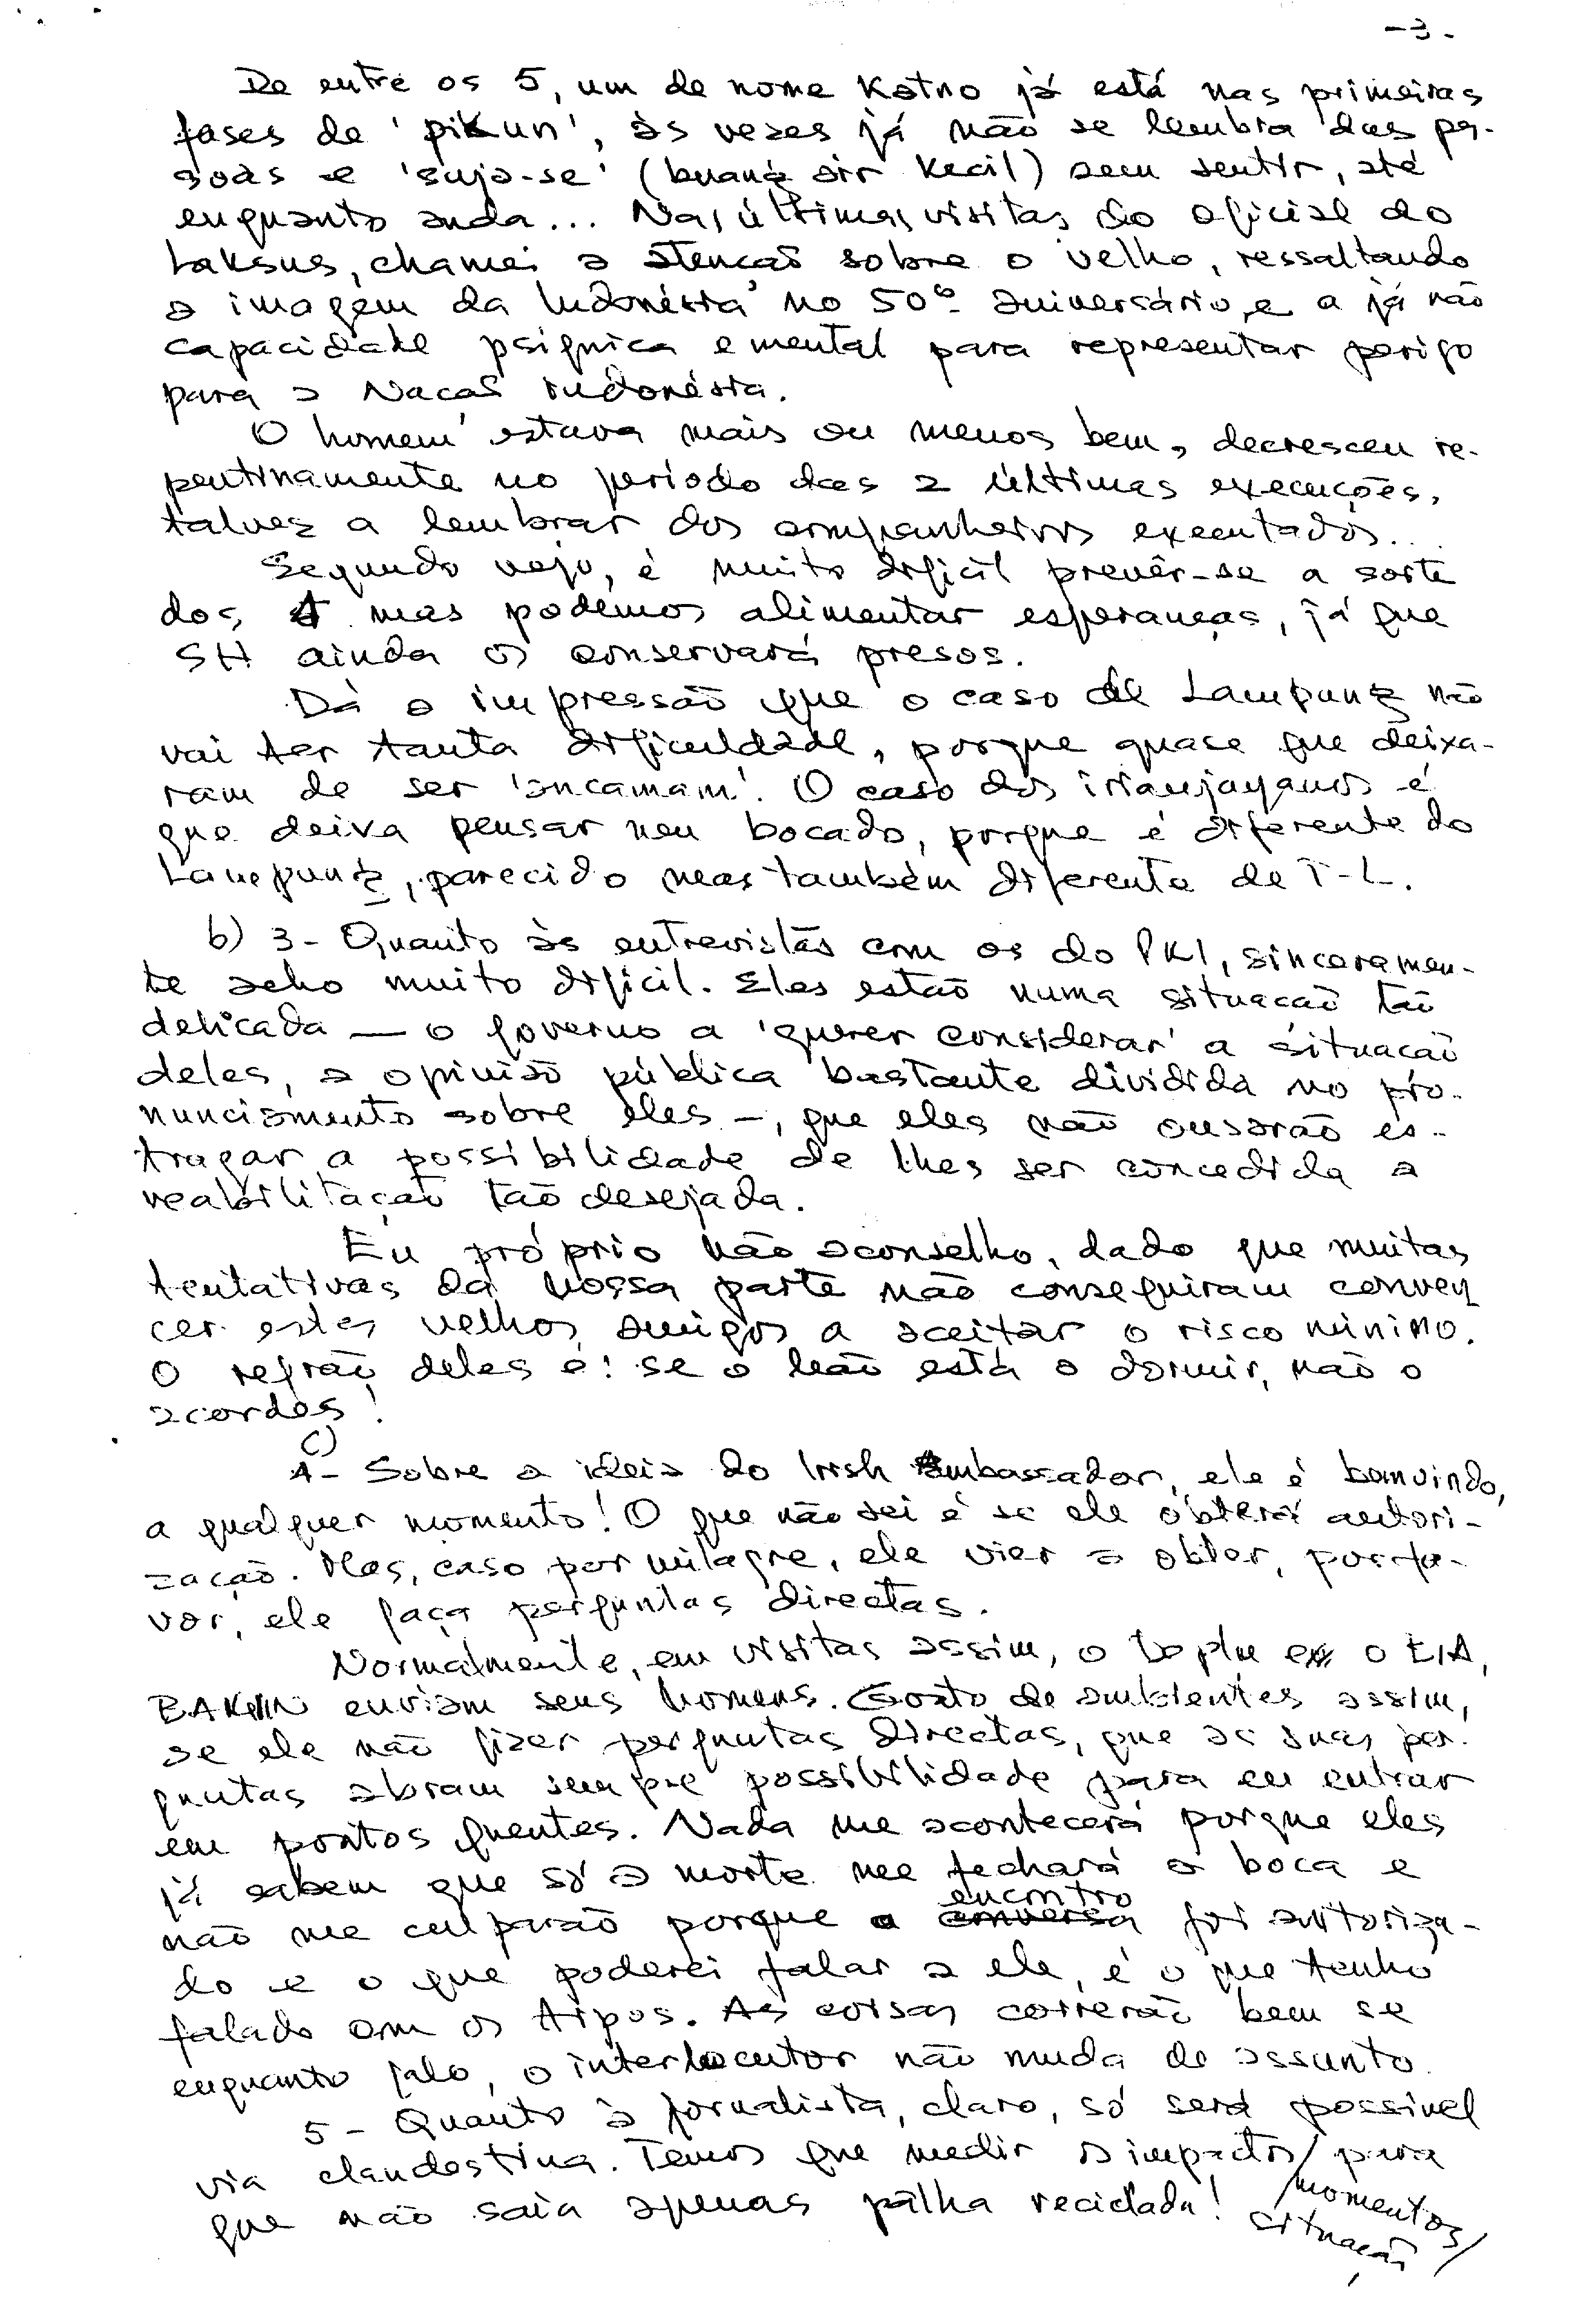 -3-
De entre os 5, um de nome Katno já está nas primeiras
fases de 'pikun', às vezes já não se lembra das pes-
soas e 'suja-se' (buang air kecil) sem sentir, até
enquanto anda... Nas últimas visitas do oficial do
Laksus, chamei a atenção sobre o velho, ressaltando
a imagem da Indonésia no 50º aniversário, e a já não
capacidade psíquica e mental para representar perigo
para a Nação indonésia.
O homem estava mais ou menos bem, decresceu re-
pentinamente no período das 2 últimas execuções,
talvez a lembrar dos companheiros executados...
Segundo vejo, é muito difícil prevêr-se a sorte
dos 4 mas podemos alimentar esperanças, já que
SH ainda os conservará presos.
Dá a impressão que o caso de Lampung não
vai ter tanta dificuldade, porque quase que deixa-
ram de ser 'ancaman'. O caso dos irianjayanos é
que deixa pensar um bocado, porque é diferente do
Lampung, parecido mas também diferente de T-L.
b) 3- Quanto às entrevistas com os do PKI, sinceramen-
te acho muito difícil. Eles estão numa situação tão
delicada — o governo a 'querer considerar' a situação
deles, a opinião pública bastante dividida no pro-
nunciamento sobre eles -, que eles não ousarão es-
tragar a possibilidade de lhes ser concedida a
reabilitação tão desejada.
Eu próprio não aconselho, dado que muitas
tentativas da nossa parte não conseguiram conven
cer estes velhos amigos a aceitar o risco mínimo.
O refrão deles é: se o leão está a dormir, não o
acordes!
c)
4- Sobre a ideia do Irish Ambassador, ele é bemvindo,
a qualquer momento! O que não sei é se ele obterá autori-
zação. Mas, caso por milagre, ele vier a obter, por fa-
vor, ele faça perguntas directas.
Normalmente, em visitas assim, o Deplu e o EIA,
BAKIN enviam seus homens. Gosto de ambientes assim,
se ele não fizer perguntas directas, que as suas per-
guntas abram sempre possibilidade para eu entrar
em pontos quentes. Nada me acontecerá porque eles
já sabem que só a morte me fechará a boca e
não me culparão porque o encontro foi autoriza-
do e o que poderei falar a ele, é o que tenho
falado com os tipos. As coisas correrão bem se
enquanto falo, o interlocutor não muda de assunto.
5- Quanto à jornalista, claro, só será possível
via clandestina. Temos que medir os impactos/para
que não saia apenas palha reciclada! /momentos/
situação